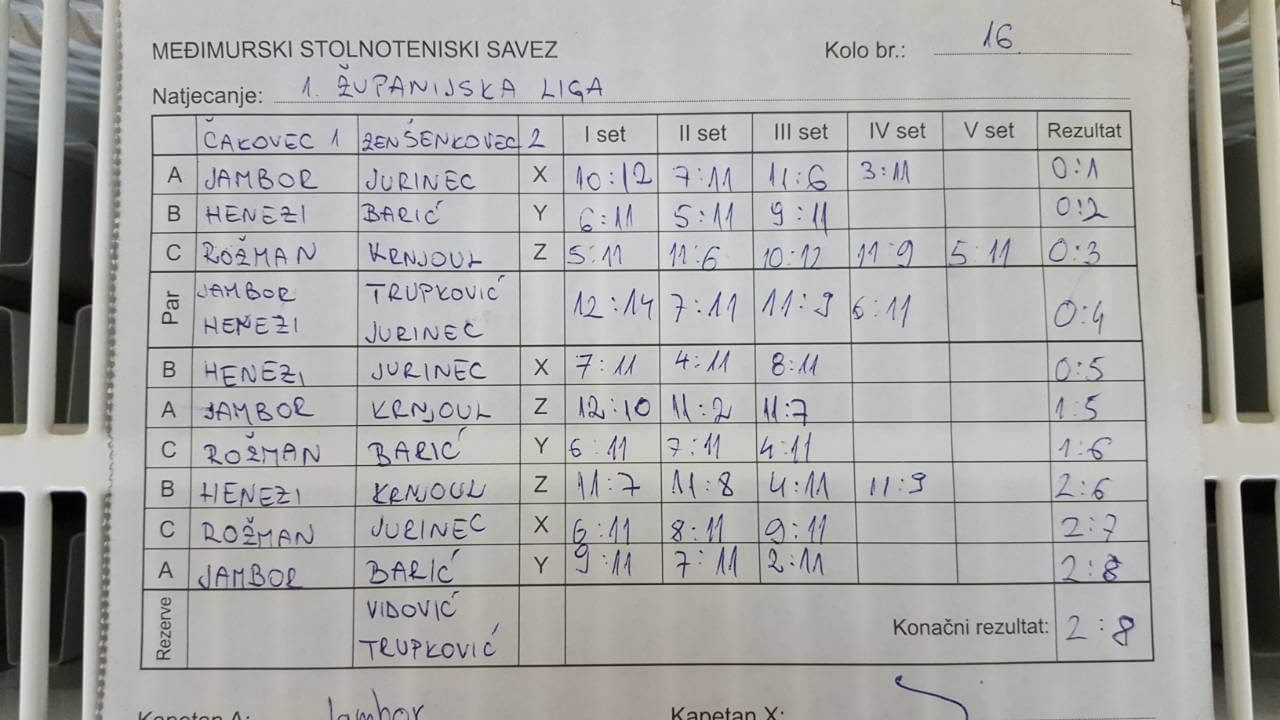 MEĐIMURSKI STOLNOTENISKI SAVEZ Kolo br.: 16
Natjecanje: 1. ŽUPANIJSKA LIGA
ČAKOVEC 1 ZENŠENKOVEC 2 I set II set III set IV set V set Rezultat
A JAMBOR JURINEC X 10:12 7:11 11:6 3:11 0:1
B HENEZI BARIĆ Y 6:11 5:11 9:11 0:2
C ROŽMAN KRNJOUL Z 5:11 11:6 10:12 11:9 5:11 0:3
Par JAMBOR TRUPKOVIĆ 12:14 7:11 11:9 6:11 0:4
HENEZI JURINEC
B HENEZI JURINEC X 7:11 4:11 8:11 0:5
A JAMBOR KRNJOUL Z 12:10 11:2 11:7 1:5
C ROŽMAN BARIĆ Y 6:11 7:11 4:11 1:6
B HENEZI KRNJOUL Z 11:7 11:8 4:11 11:9 2:6
C ROŽMAN JURINEC X 6:11 8:11 9:11 2:7
A JAMBOR BARIĆ Y 9:11 7:11 2:11 2:8
Rezerve VIDOVIĆ Konačni rezultat: 2:8
TRUPKOVIĆ
Kapetan A: Jambor Kapetan X: